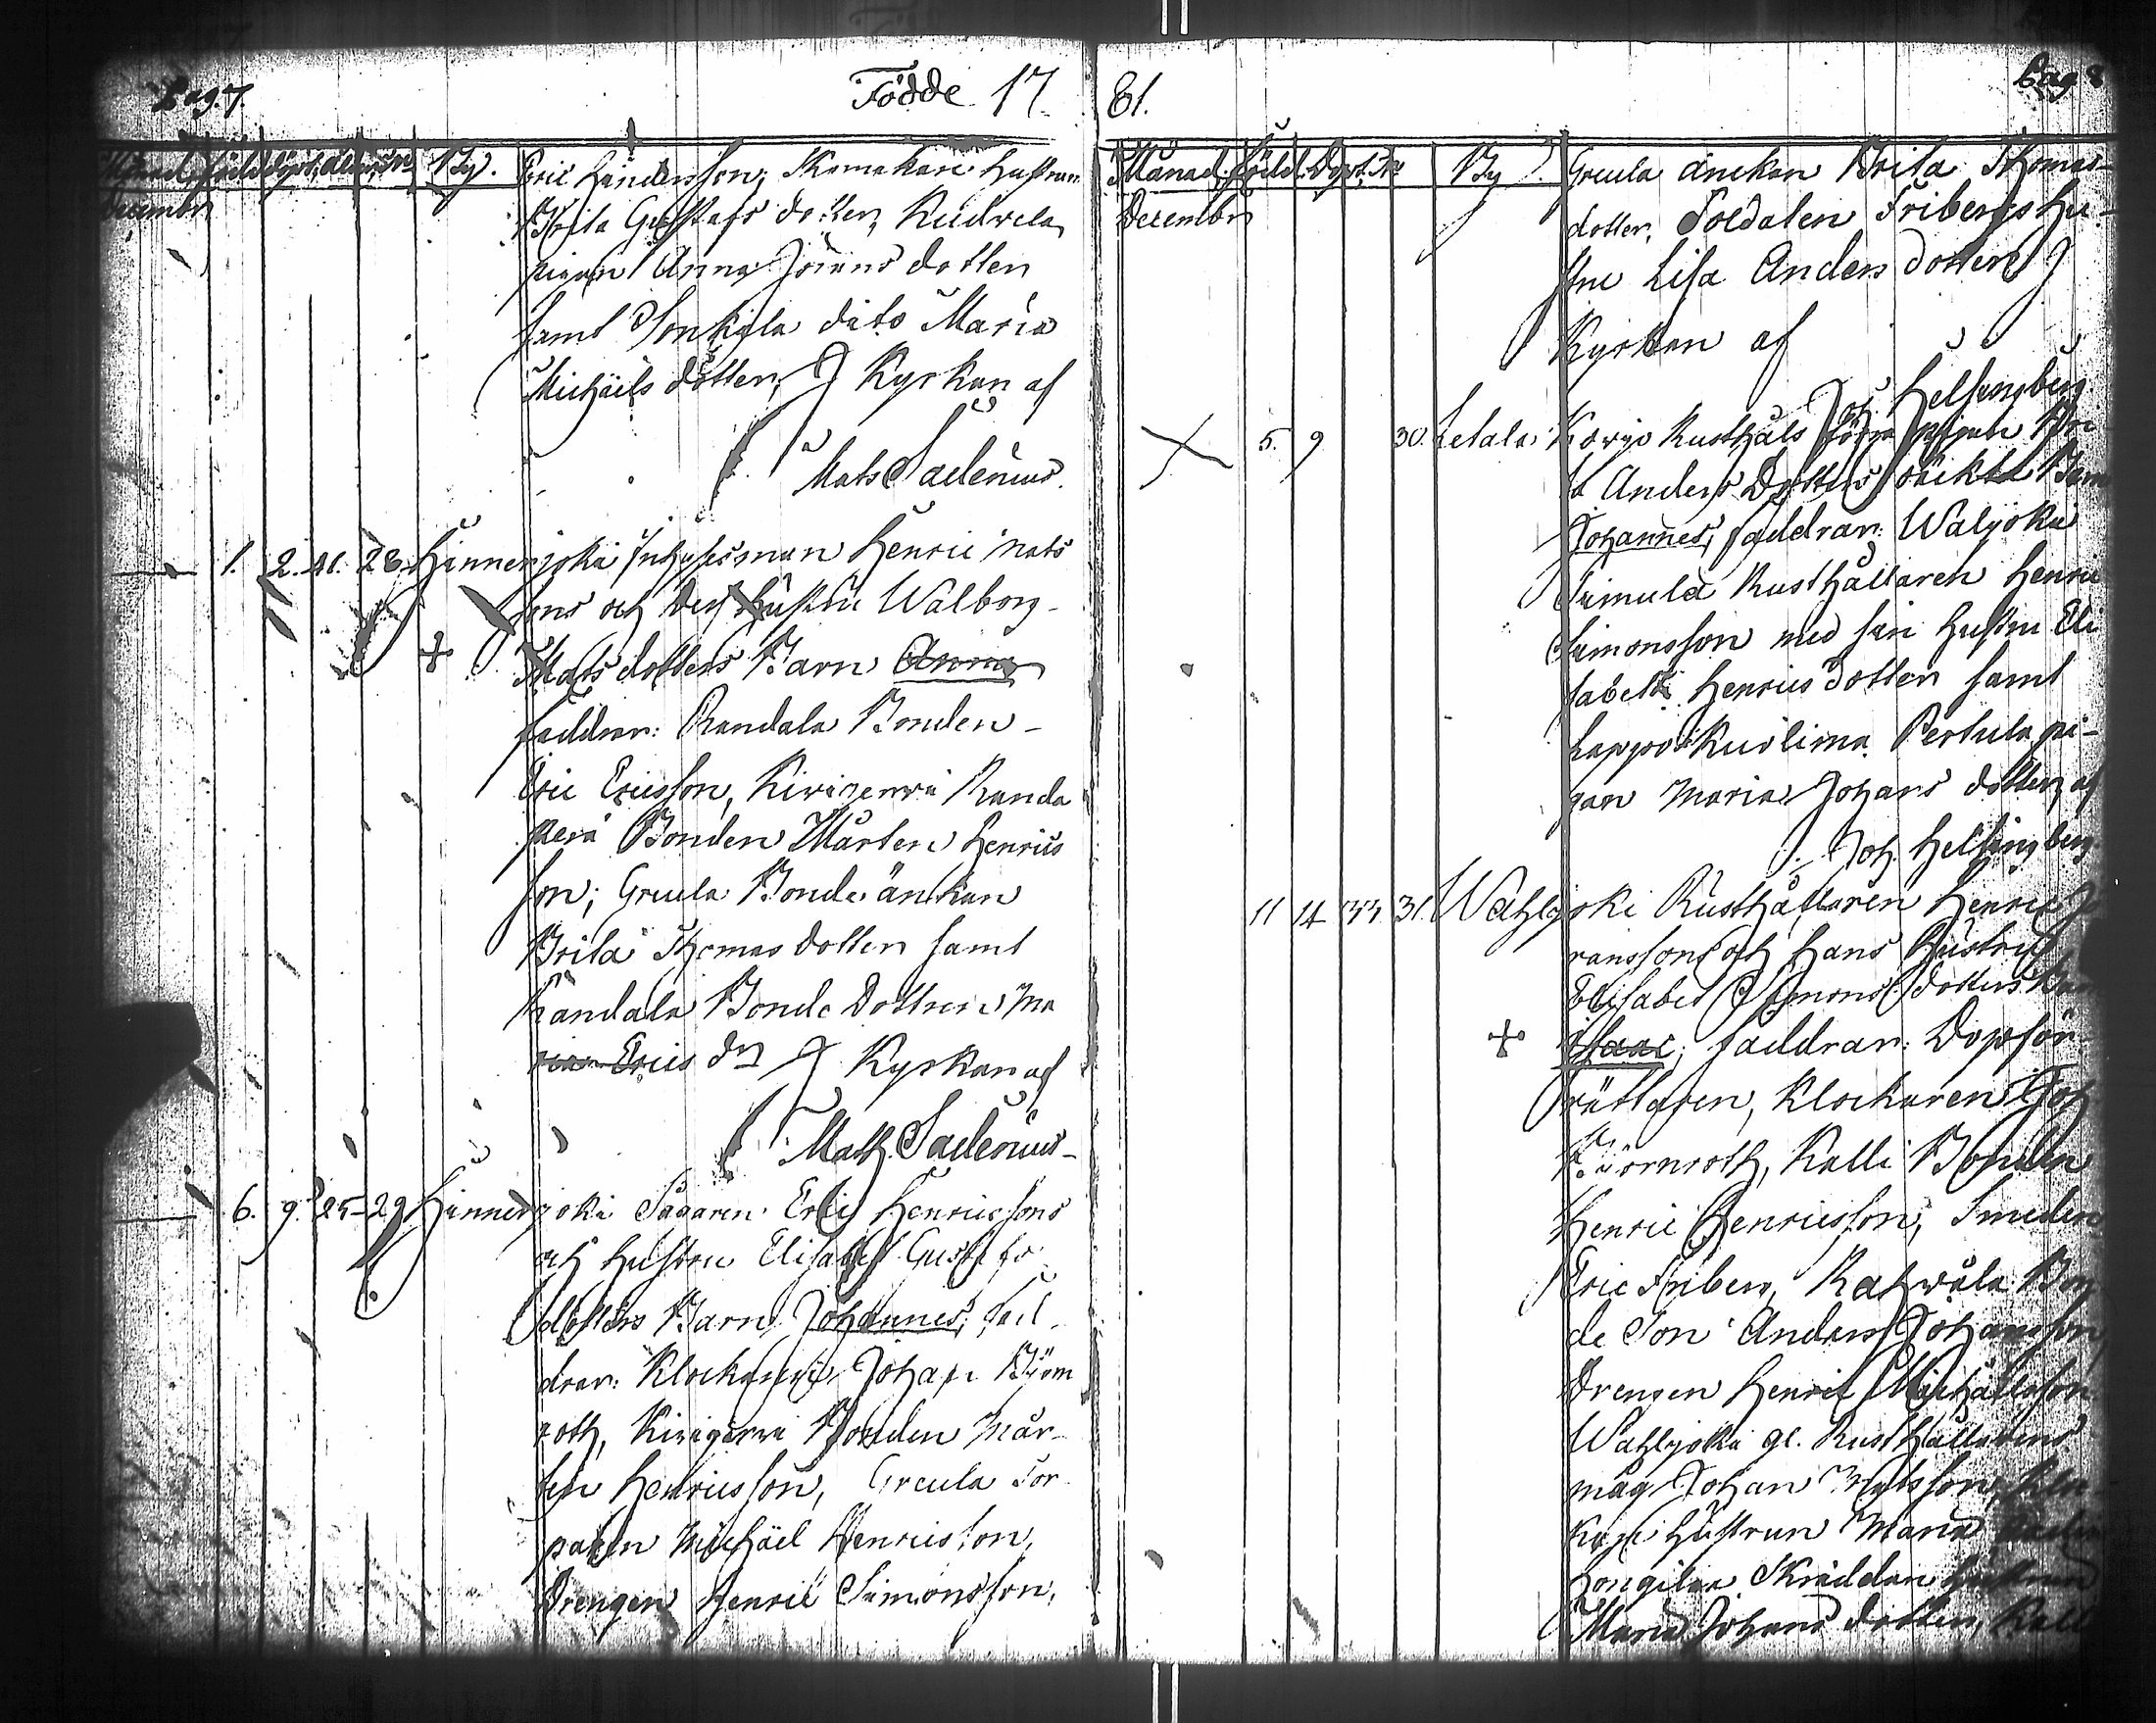 Pag. 7.
Födde 17
Månad. född. döpt. ålder. N° By.
December
Eric Andersson, Skomakare hustrun
Brita Gustafs dotter, Kudvela
pigan Anna Jörans dotter
samt Sonkila dito Maria
Michäels dotter, J Kyrkan af
Mats Salenius.
1. 2. 41. 28. Hinnerjoki Inhysesman Henric Mats
sons och dess hustru Walborg
Mats dotters Barn Anna
faddrar: Randala Bonden
Eric Ericsson, Kirigenwi Randa
Bonden Mårten Henrics
son; Greula Bonde änkan
Brita Thomas dotter samt
Randala Bonde Dottren Ma
ria Erics dr J Kyrkan af
Math. Salenius
6. 9. 25 29 Hinnerjoki Sågaren Eric Henricssons
och hustru Elisabet Gustafs
dotters Barn Johannes, fad
drar: Klockaren Johan Björn
roth, Kirigerwi Bonden Mår
ten Henricsson, Greula Tor
paren Michäel Henricsson,
Drengen Henric Simonsson,
81.
Pag 8
Månad. född. Döpt. N° By
December
Greula änckan Brita Thomas
dotter, Soldaten Fribergs hu
stru Lisa Anders dotter J
Kyrkan af
Joh Helsingberg
5. 9 30. Letala Korjo Rusthåls pigan Bri
ta Anders Dotters oäckta Barn
Johannes, faddrar: Waljoki
Simula Rusthållaren Henric
Simonsson med sin hustru Eli
sabeth Henrics dotter samt
Lappo Kuolima Pertula pi
gan Maria Johans dotter, af
Joh. Helsingberg
11 14 33 31. Wahljoki Rusthållaren Henric Jö
ranssons och hans Hustru
Elisabet Simons dotters Barn
Isaac, faddrar: Dopför
rättaren, Klockaren Joh
Björnroth, Kalli Bonden
Henric Henricsson, Smeden
Eric Friberg, Rahwåla Bon
de Son Anders Johansson
Drengen Henric Michälsson
Wahljoki gl. Rusthållarens
måg Johan Matsson,
hustrun Maria
Hongilan Skräddare hustrun
Maria Johans dotter, Kalli